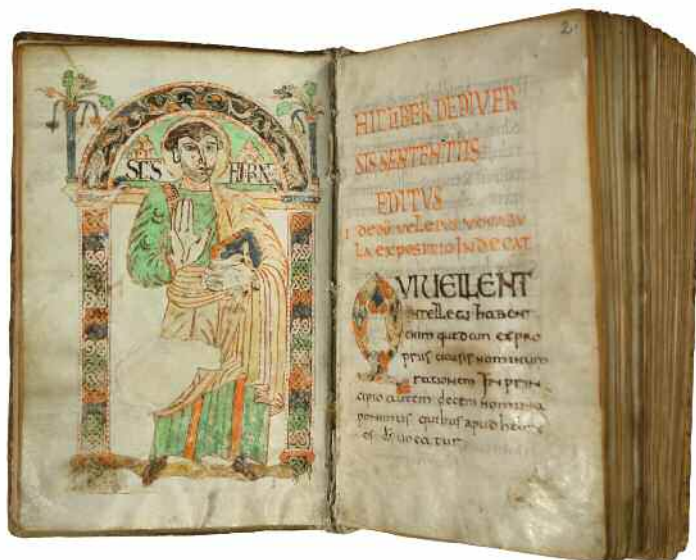 SCS HIRN
2.
HIC LIBER DE DIVER
SIS SENTENTIIS
EDITVS
I DE DI VEL EIVS VOCABU
LA EXPOSITIO INDECAT
QVI VELLENT
intellegi habent
enim quedam expro
prius causis nominum
rationem In prin
cipio autem decem nomina
ponimus quibus apud hebre
os ds uocatur